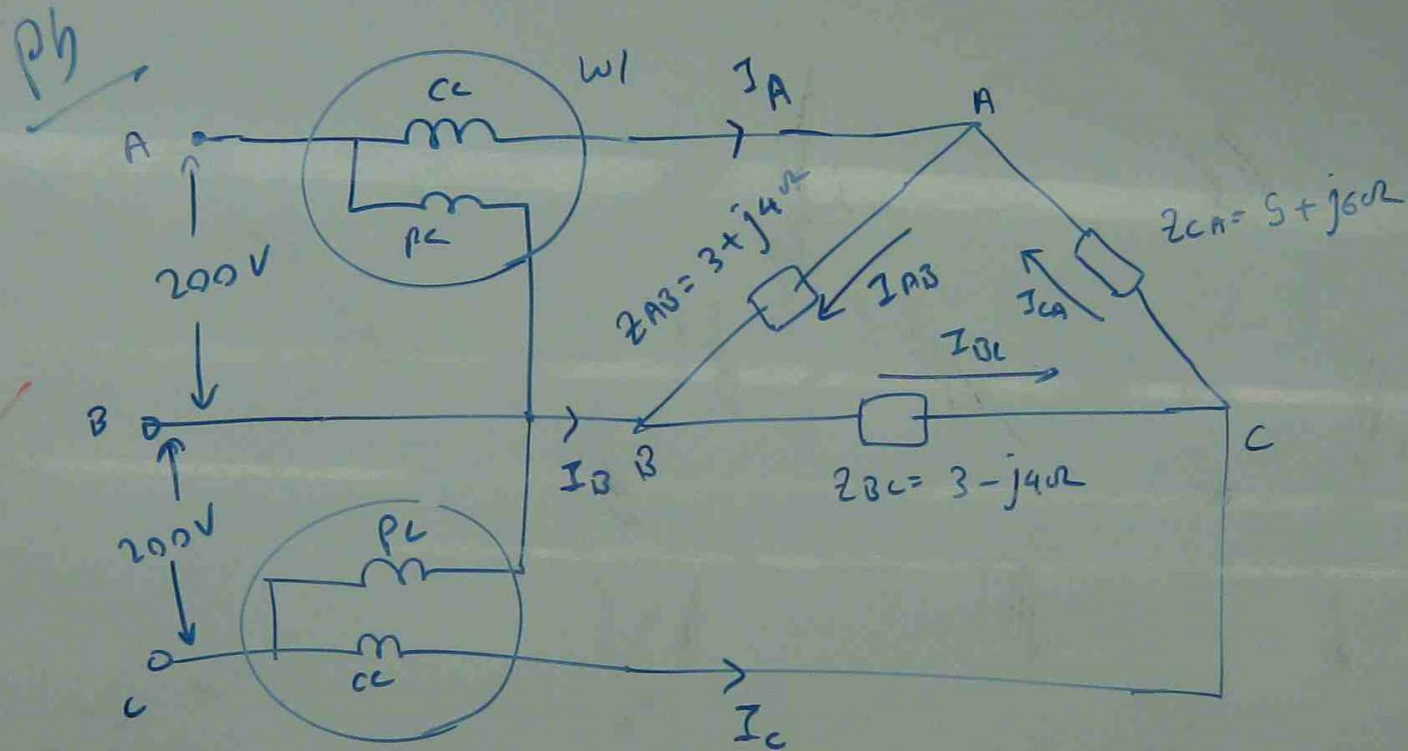 Ph
W1
CC
PC
A
I_A
A
200V
Z_AB = 3 + j4Ω
I_AB
I_CA
Z_CA = 5 + j6Ω
I_BC
B
I_B
B
C
Z_BC = 3 - j4Ω
200V
PC
CC
C
I_C